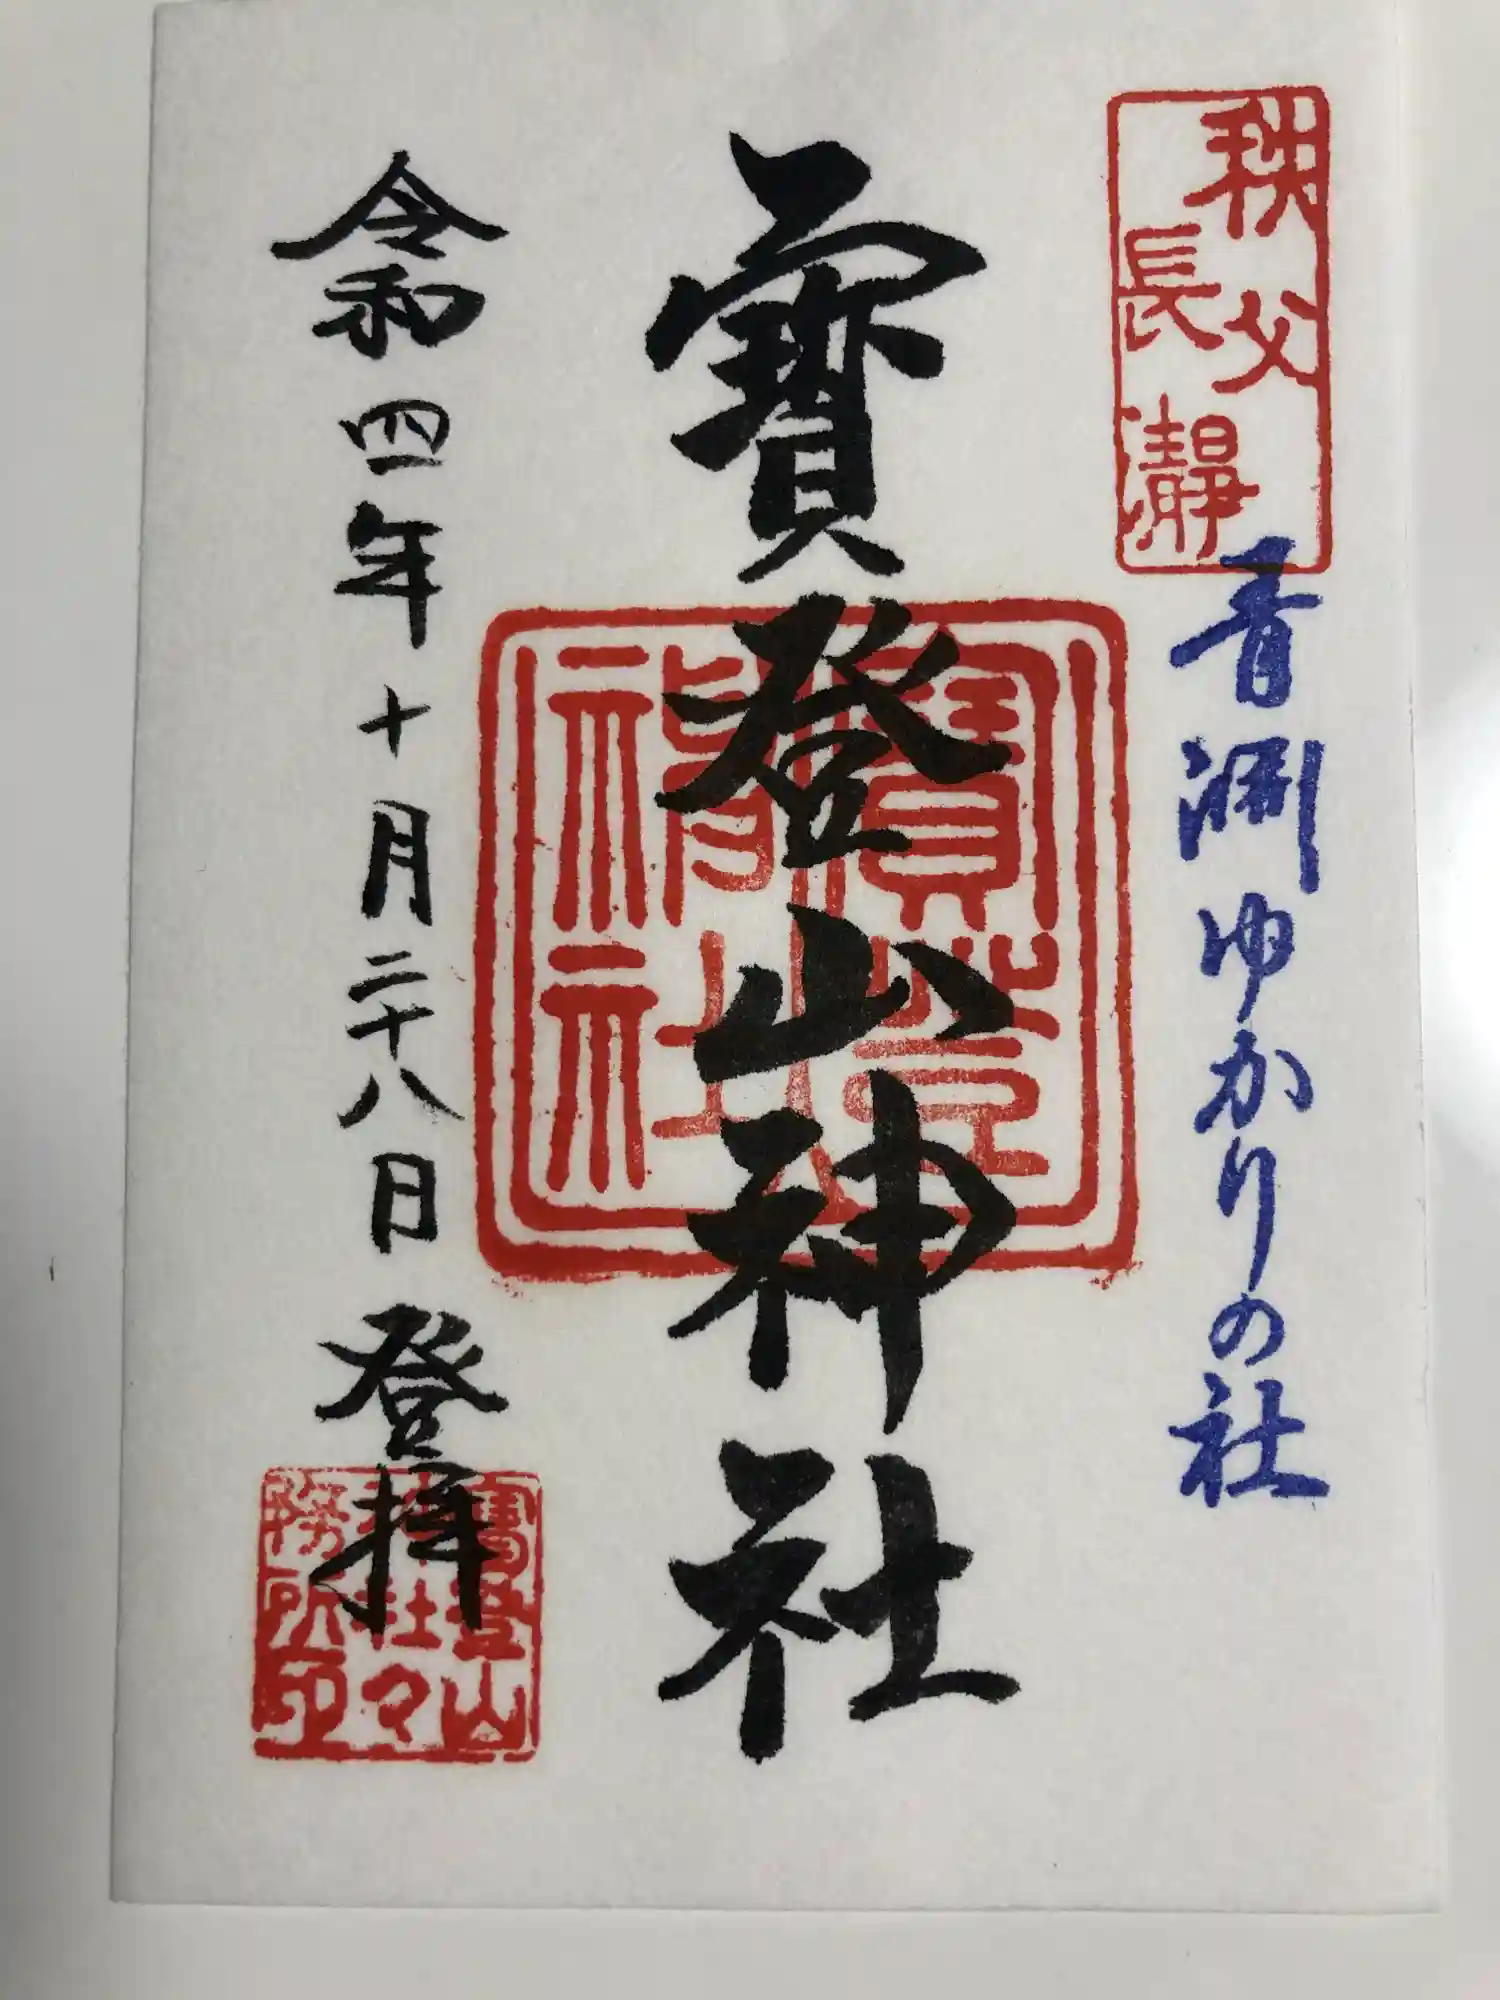 秩父
長瀞
青淵ゆかりの社
寳登山神社
寳登山
神社
令和四年十月二十八日 登拝
寳登山
神社々
務所印